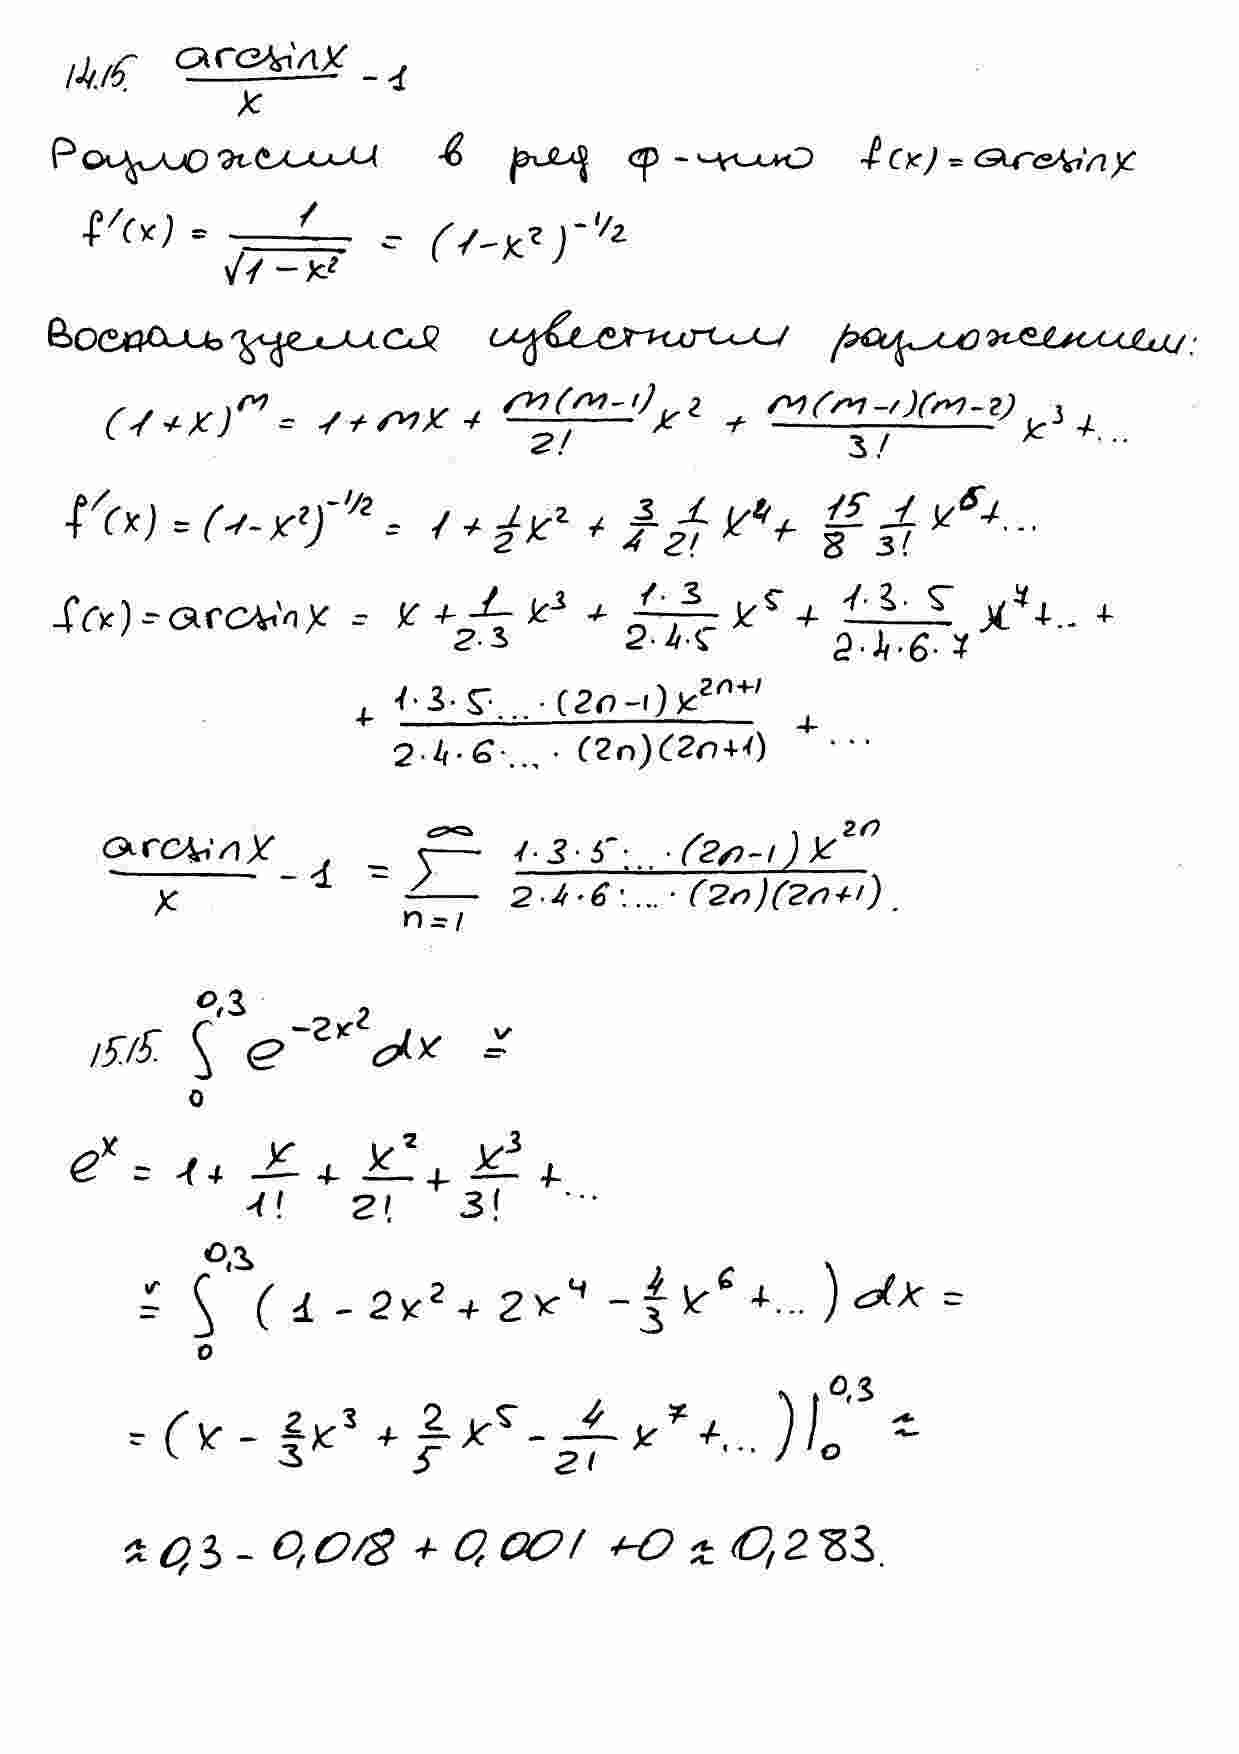 14.15. arcsinx/x - 1
Разложим в ряд ф-цию f(x) = arcsinx
f'(x) = 1/√(1-x²) = (1-x²)^(-1/2)
Воспользуемся известным разложением:
(1+x)^m = 1 + mx + m(m-1)/2! x² + m(m-1)(m-2)/3! x³ + ...
f'(x) = (1-x²)^(-1/2) = 1 + 1/2 x² + 3/4 1/2! x⁴ + 15/8 1/3! x⁶ + ...
f(x) = arcsinx = x + 1/(2·3) x³ + (1·3)/(2·4·5) x⁵ + (1·3·5)/(2·4·6·7) x⁷ + ... +
+ (1·3·5·...·(2n-1)x^(2n+1))/(2·4·6·...·(2n)(2n+1)) + ...
arcsinx/x - 1 = ∑_(n=1)^∞ (1·3·5·...·(2n-1)x^(2n))/(2·4·6·...·(2n)(2n+1)).
15.15. ∫_0^0,3 e^(-2x²) dx =ᵛ
e^x = 1 + x/1! + x²/2! + x³/3! + ...
=ᵛ ∫_0^0,3 (1 - 2x² + 2x⁴ - 4/3 x⁶ + ...) dx =
= (x - 2/3 x³ + 2/5 x⁵ - 4/21 x⁷ + ...)|_0^0,3 ≈
≈ 0,3 - 0,018 + 0,001 + 0 ≈ 0,283.